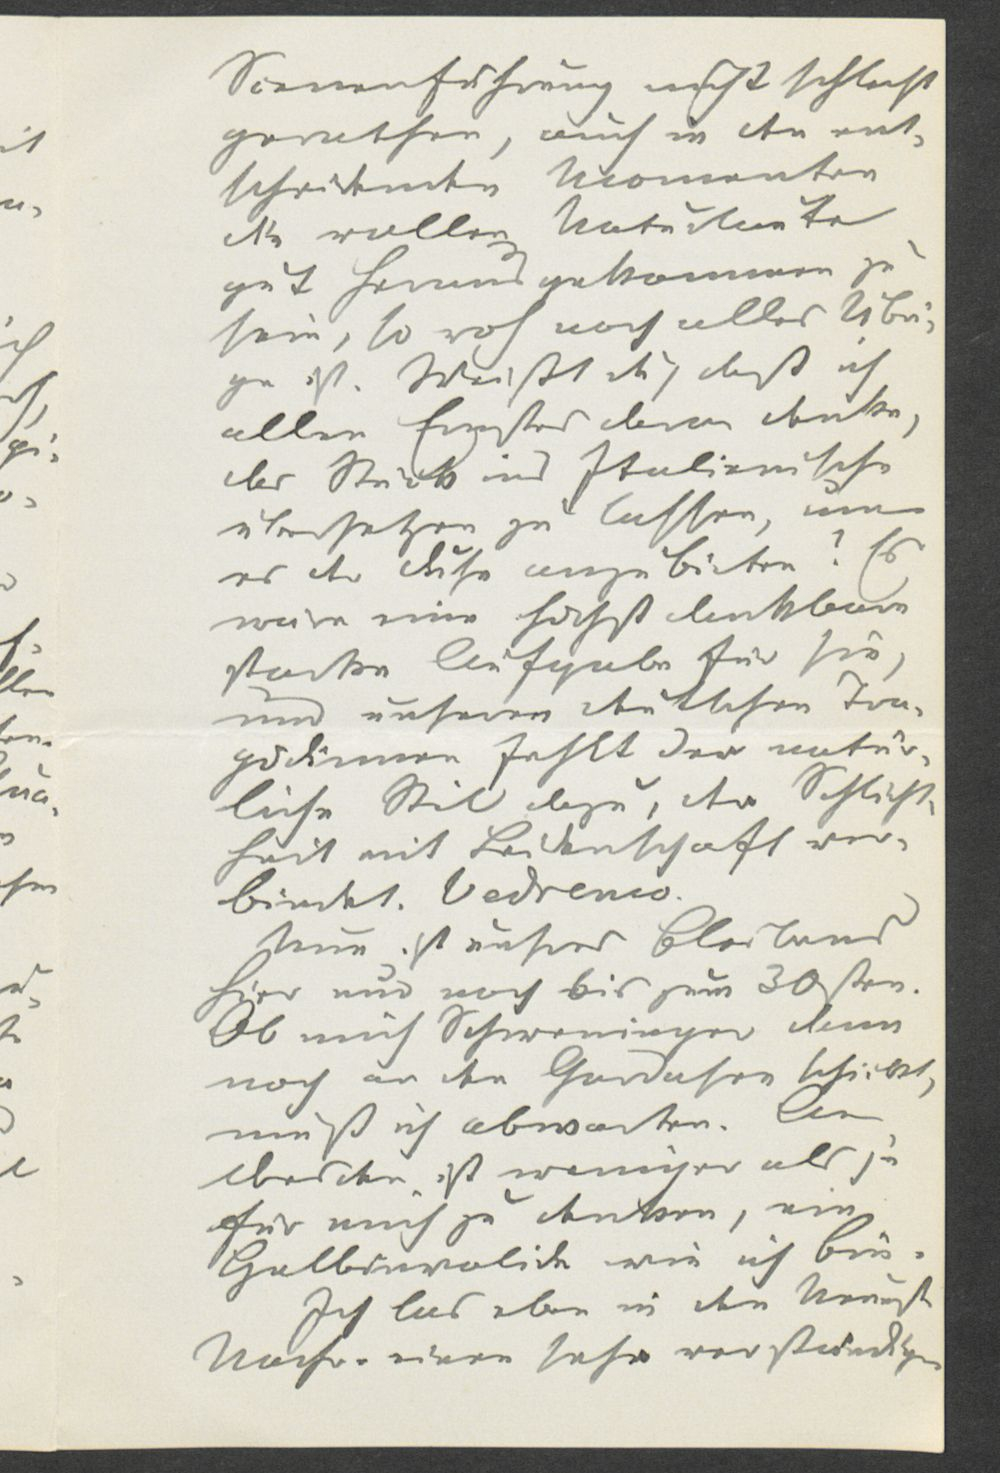 Scenenführung nicht schlecht
gerathen, auch in den ent-
scheidenden Momenten
die vollen Naturlaute
gut herausgekommen zu
sein, so roh noch alles Übri-
ge ist. Weißt du, daß ich
allen Ernstes daran denke,
das Stück ins Italienische
übersetzen zu lassen, um
es der Duse anzubieten? Es
wäre eine höchst dankbare
starke Aufgabe für sie,
und unseren deutschen Tra-
gödinnen fehlt der natür-
liche Stil dazu, der Schlicht-
heit mit Leidenschaft ver-
bindet. Vedremo.
Nun ist unseres Bleibens
hier nur noch bis zum 30sten.
Ob mich Schweninger dann
noch an den Gardasee schickt,
muß ich abwarten. An
Dresden ist weniger als je
für mich zu denken, ein
Halbinvalide wie ich bin.
Ich las eben in den Neuest.
Nachr. einen sehr verständigen